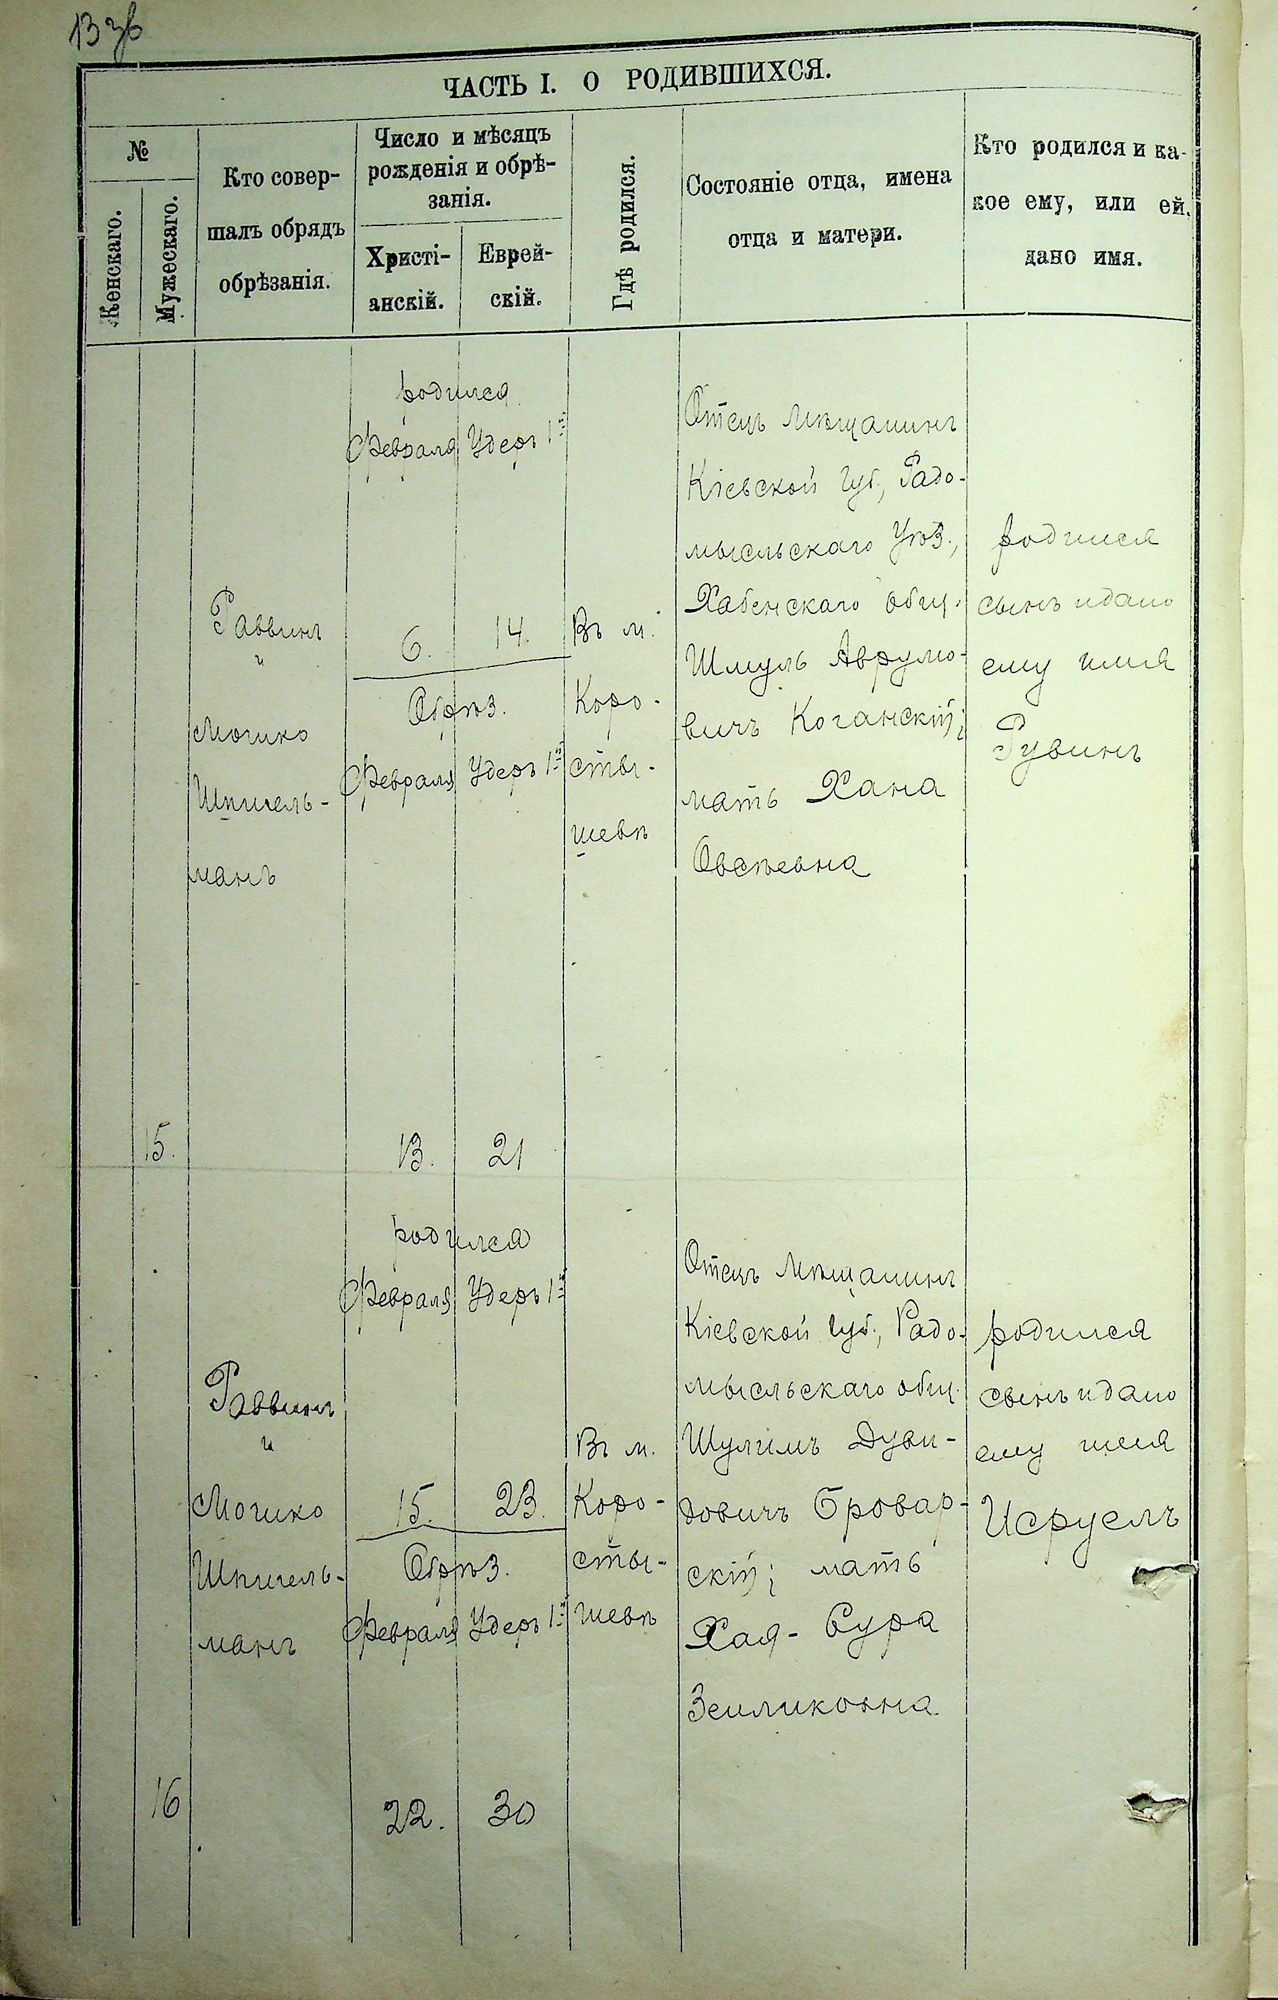 13 зв
ЧАСТЬ I. О РОДИВШИХСЯ.
№
Женскаго.
Мужескаго.
Кто совер-
шалъ обрядъ
обрѣзанія.
Число и мѣсяцъ
рожденія и обрѣ-
занія.
Христі-
анскій.
Еврей-
скій.
Гдѣ родился.
Состояніе отца, имена
отца и матери.
Кто родился и ка-
кое ему, или ей,
дано имя.
15.
Раввинъ
и
Мошко
Шпигель-
манъ
родился
Февраля Удеръ 1й
6. 14.
Обрѣз.
Февраля Удеръ 1й
13. 21
Въ м.
Коро-
сты-
шевѣ
Отецъ Мѣщанинъ
Кіевской Губ., Радо-
мысльскаго Уѣз.,
Хабенскаго общ.
Шмуль Аврумо-
вичъ Коганскій;
мать Хана
Овсѣевна
родился
сынъ и дано
ему имя
Рувинъ
16
Раввинъ
и
Мошко
Шпигель-
манъ
родился
Февраля Удеръ 1й
15. 23.
Обрѣз.
Февраля Удеръ 1й
22. 30
Въ м.
Коро-
сты-
шевѣ
Отецъ Мѣщанинъ
Кіевской Губ., Радо-
мысльскаго общ.
Шулимъ Дуви-
довичъ Бровар-
скій; мать
Хая-Сура
Зейликовна
родился
сынъ и дано
ему имя
Исруель